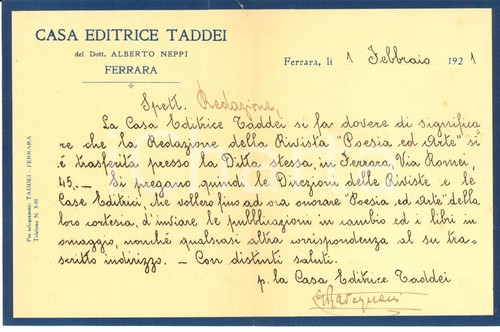 CASA EDITRICE TADDEI
del Dott. ALBERTO NEPPI
FERRARA
Ferrara, li 1 Febbraio 1921
Spett. Redazione,
La Casa Editrice Taddei si fa dovere di significa
re che la Redazione della Rivista "Poesia ed Arte" si
è trasferita presso la Ditta stessa, in Ferrara, Via Romei,
45. — Si pregano quindi le Direzioni delle Riviste e le
Case Editrici, che vollero fino ad ora onorare "Poesia ed Arte" della
loro cortesia, d'inviare le pubblicazioni in cambio ed i libri in
omaggio, nonché qualsiasi altra corrispondenza al su tra-
scritto indirizzo. — Con distinti saluti.
p. la Casa Editrice Taddei
Per telegrammi: TADDEI - FERRARA
Telefono N. 3-91